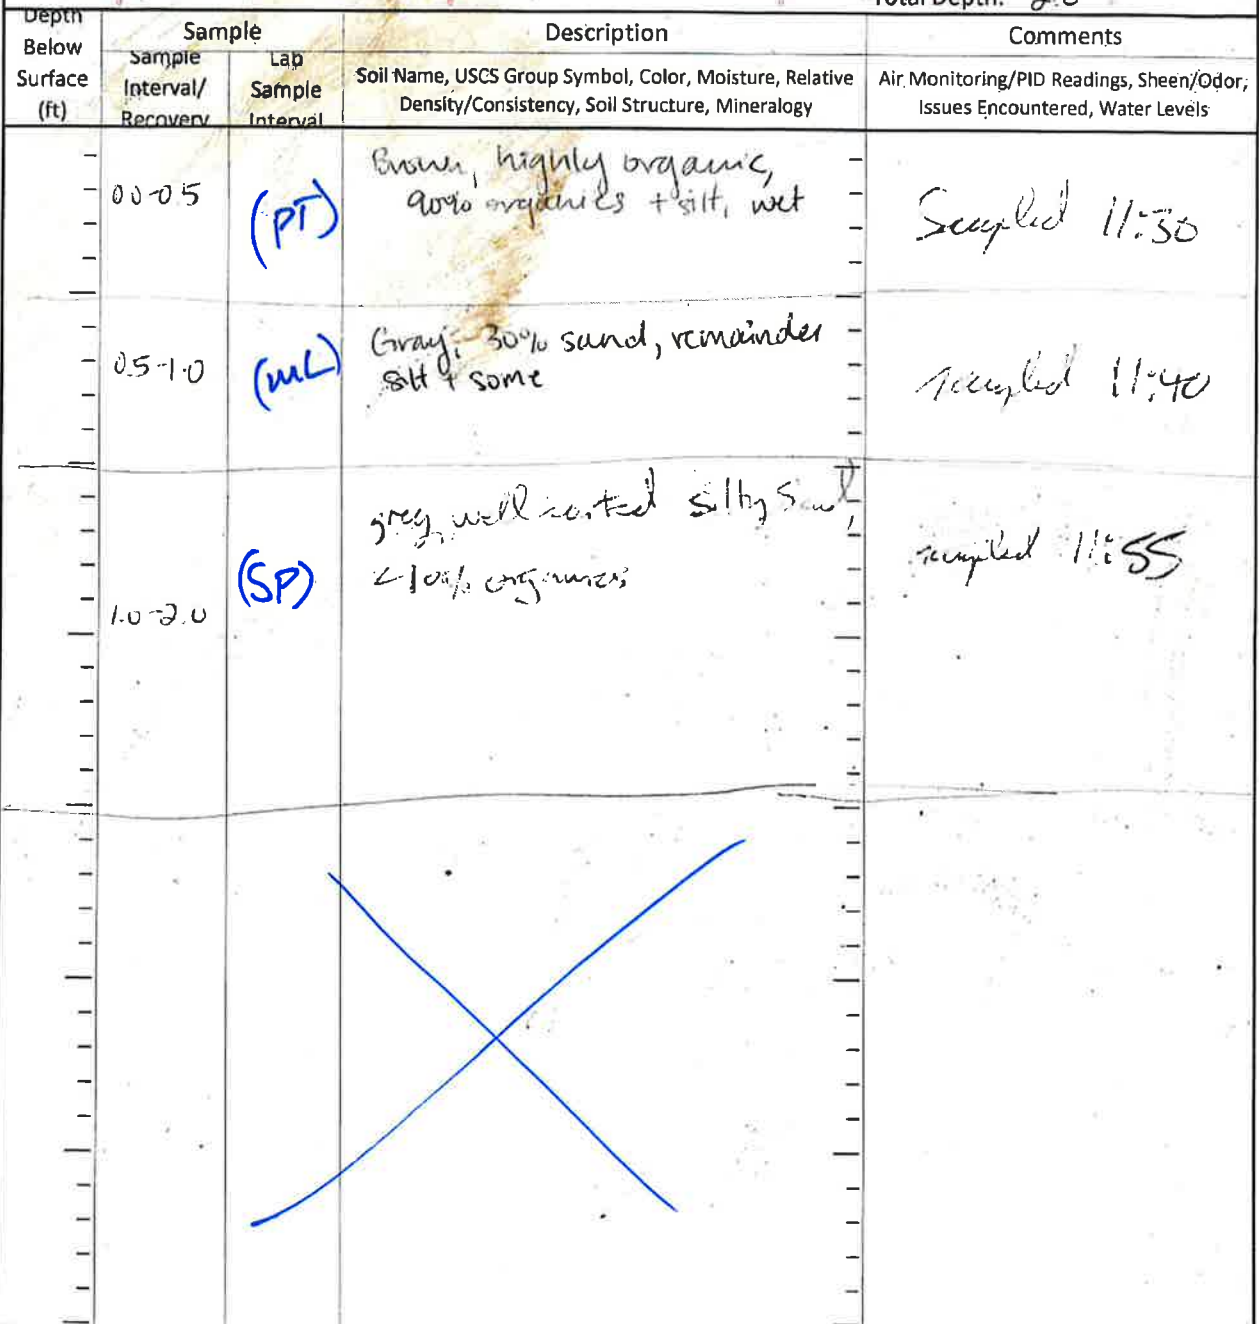 Total Depth: 2.0
Depth
Below
Surface
(ft)
Sample
Sample
Interval/
Recovery
Lab
Sample
Interval
Description
Soil Name, USCS Group Symbol, Color, Moisture, Relative
Density/Consistency, Soil Structure, Mineralogy
Comments
Air Monitoring/PID Readings, Sheen/Odor,
Issues Encountered, Water Levels
0.0-0.5
(PT)
Brown, highly organic,
90% organics + silt, wet
Sampled 11:30
0.5-1.0
(ML)
Gray, 30% sand, remainder
silt + some
sampled 11:40
1.0-2.0
(SP)
grey, well sorted silty sand,
<10% organics
sampled 11:55